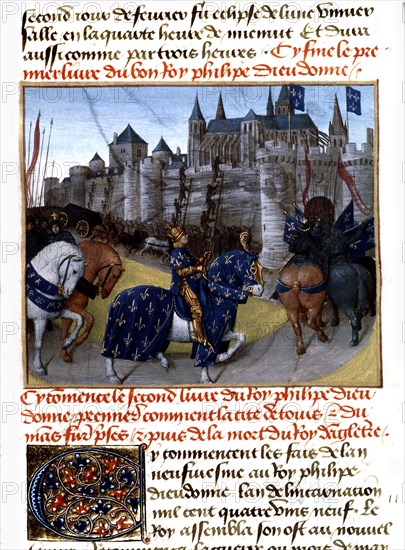 second iour de feurier fu eclipse de lune vniuer
salle en la quarte heure de mienuit Et dura
aussi comme par trois heures. Cy fine le pre
mier liure du bon Roy philipe dieudonne
Cy comence le second liure du Roy philipe dieu
donne premier comment la cite de tours &du
mans furent prises & puis de la mort du Roy dangletre.
y commencent les fais de lan
neufuiesme au Roy philipe
dieudonne lan delincarnation
mil cent quatre vins neuf. Le
Roy assembla son ost au nouvel